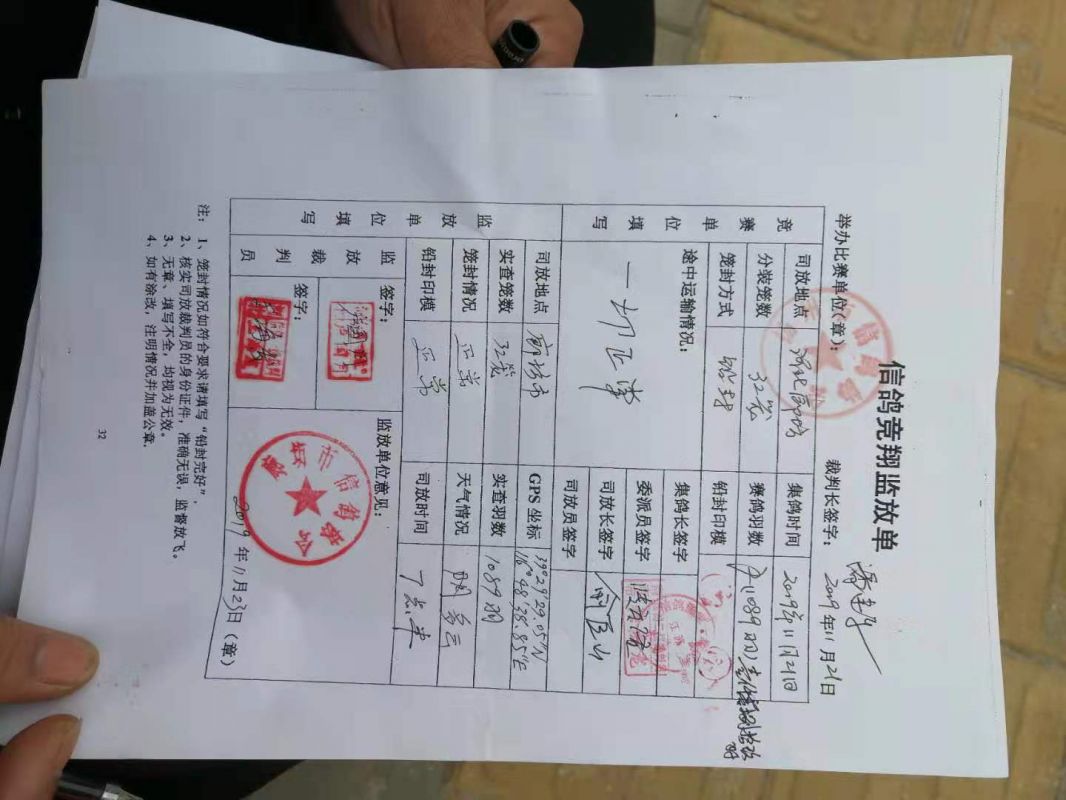 信鸽竞翔监放单
举办比赛单位(章):
裁判长签字:
2019年11月21日
竞赛单位填写
司放地点 河北廊坊 集鸽时间 2019年11月21日
分装笼数 32笼 赛鸽羽数 1089羽
笼封方式 铅封 铅封印模
途中运输情况: 集鸽长签字
一切正常 委派员签字
司放长签字
司放员签字
监放单位填写
司放地点 廊坊市 GPS坐标 39°29′29.05″N 116°48′38.85″E
实查笼数 32笼 实查羽数 1089羽
笼封情况 正常 天气情况 多云
铅封印模 正常 司放时间 7点半
监放裁判员
签字:
签字:
监放单位意见:
2019年11月23日(章)
注: 1、笼封情况如符合要求请填写“铅封完好”。
2、核实司放裁判员的身份证件,准确无误,监督放飞。
3、无章、填写不全,均视为无效。
4、如有涂改,注明情况并加盖公章。
32